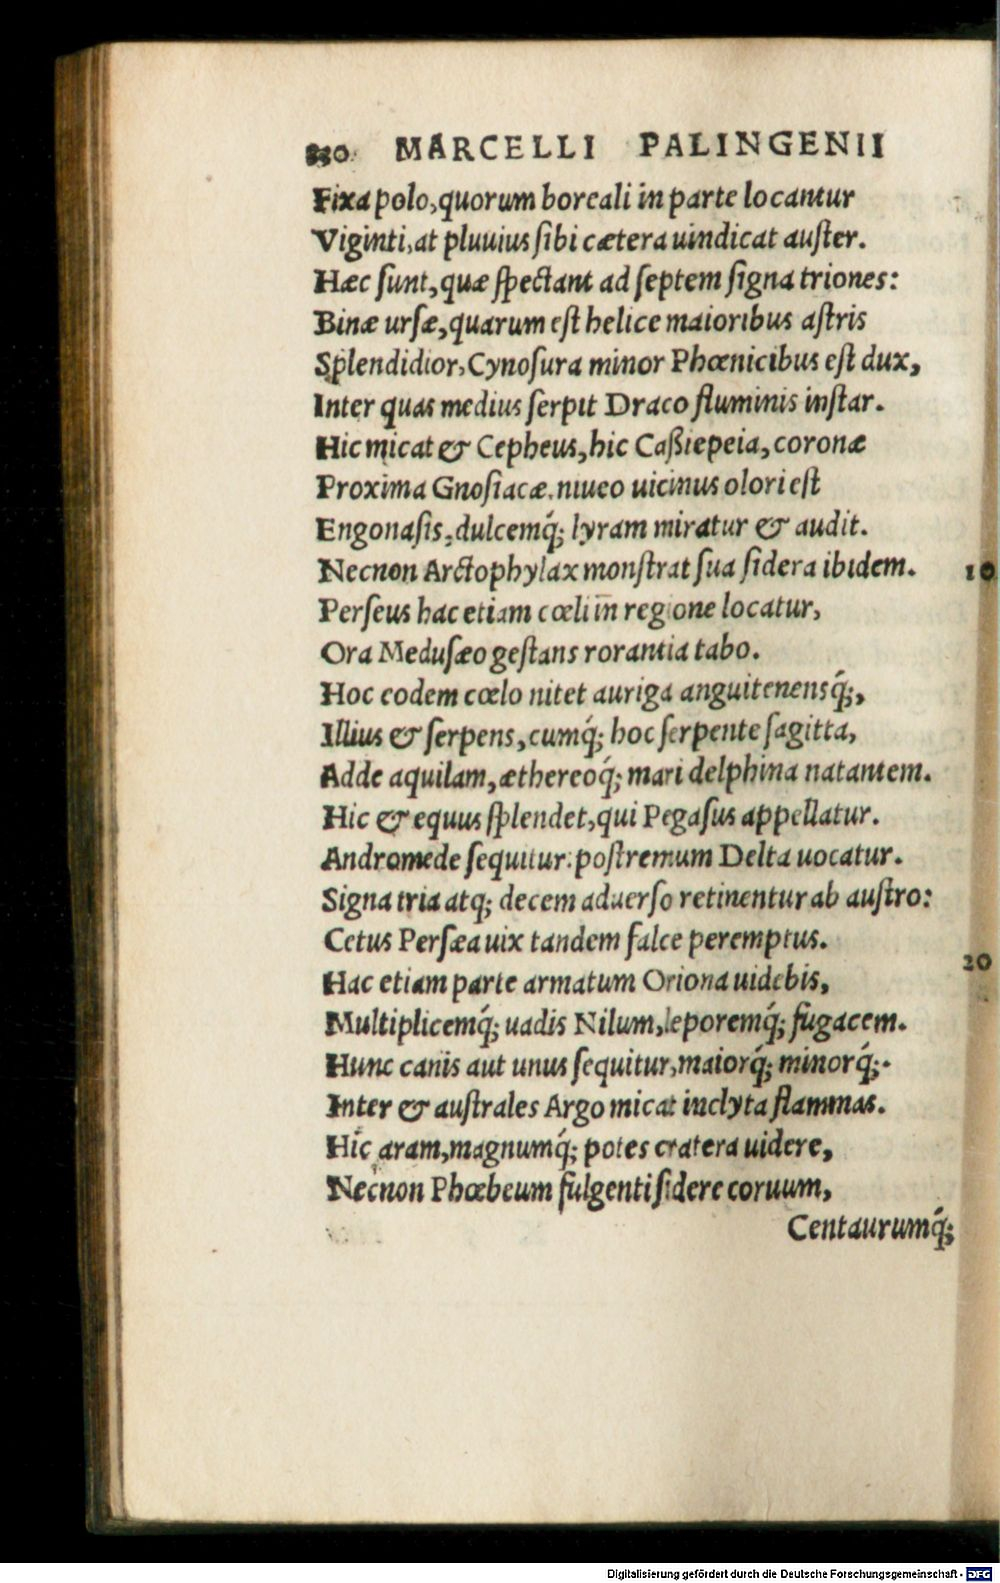 MARCELLI PALINGENII
Fixa polo, quorum boreali in parte locantur
Viginti, at pluuius ſibi cætera uindicat auſter.
Hæc ſunt, quæ ſpectant ad ſeptem ſigna triones:
Binæ urſæ, quarum eſt helice maioribus aſtris
Splendidior, Cynoſura minor Phœnicibus eſt dux,
Inter quas medius ſerpit Draco fluminis inſtar.
Hic micat & Cepheus, hic Caßiepeia, coronæ
Proxima Gnoſiacæ. niueo uicinus olori eſt
Engonaſis, dulcemq́; lyram miratur & audit.
Necnon Arctophylax monſtrat ſua ſidera ibidem. 10
Perſeus hac etiam cœli in regione locatur,
Ora Meduſæo geſtans rorantia tabo.
Hoc eodem cœlo nitet auriga anguitenensq́;,
Illius & ſerpens, cumq́; hoc ſerpente ſagitta,
Adde aquilam, æthereoq́; mari delphina natantem.
Hic & equus ſplendet, qui Pegaſus appellatur.
Andromede ſequitur: poſtremum Delta uocatur.
Signa tria atq; decem aduerſo retinentur ab auſtro:
Cetus Perſæa uix tandem falce peremptus.
Hac etiam parte armatum Oriona uidebis, 20
Multiplicemq́; uadis Nilum, leporemq́; fugacem.
Hunc canis aut unus ſequitur, maiorq́; minorq́;.
Inter & auſtrales Argo micat inclyta flammas.
Hic aram, magnumq́; potes cratera uidere,
Necnon Phœbeum fulgenti ſidere coruum,
Centaurumq́;
Digitalisierung gefördert durch die Deutsche Forschungsgemeinschaft - DFG